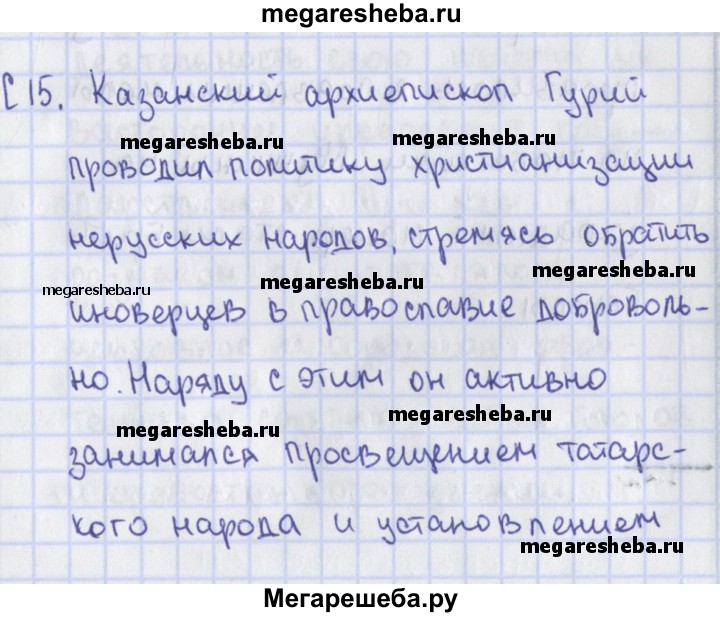 megaresheba.ru
[15. Казанский архиепископ Гурий
megaresheba.ru
megaresheba.ru
проводил политику христианизации
нерусских народов, стремясь обратить
megaresheba.ru
megaresheba.ru
megaresheba.ru
иноверцев в православие доброволь-
но. Наряду с этим он активно
megaresheba.ru
megaresheba.ru
занимался просвещением татарс-
кого народа и установлением
megaresheba.ru
Мегарешеба.ру